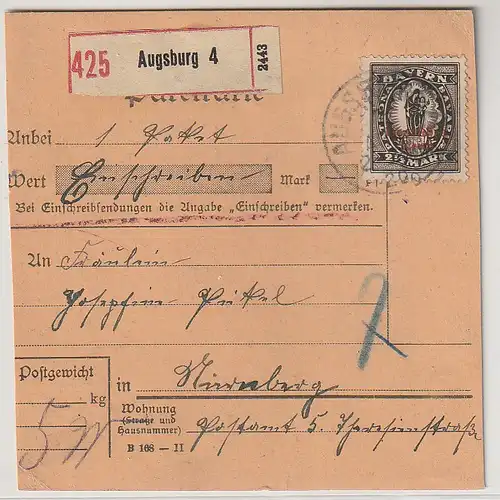 425 Augsburg 4 2443
Paketkarte
Anbei 1 Paket
Wert Einschreiben Mark
Bei Einschreibsendungen die Angabe „Einschreiben” vermerken.
An Fräulein
Josephine Pickel
Postgewicht
kg
5
in Nürnberg
Wohnung
(Straße und
Hausnummer)
Postamt 5 Theresienstraße
B 168 — II
BAYERN
2½ MARK